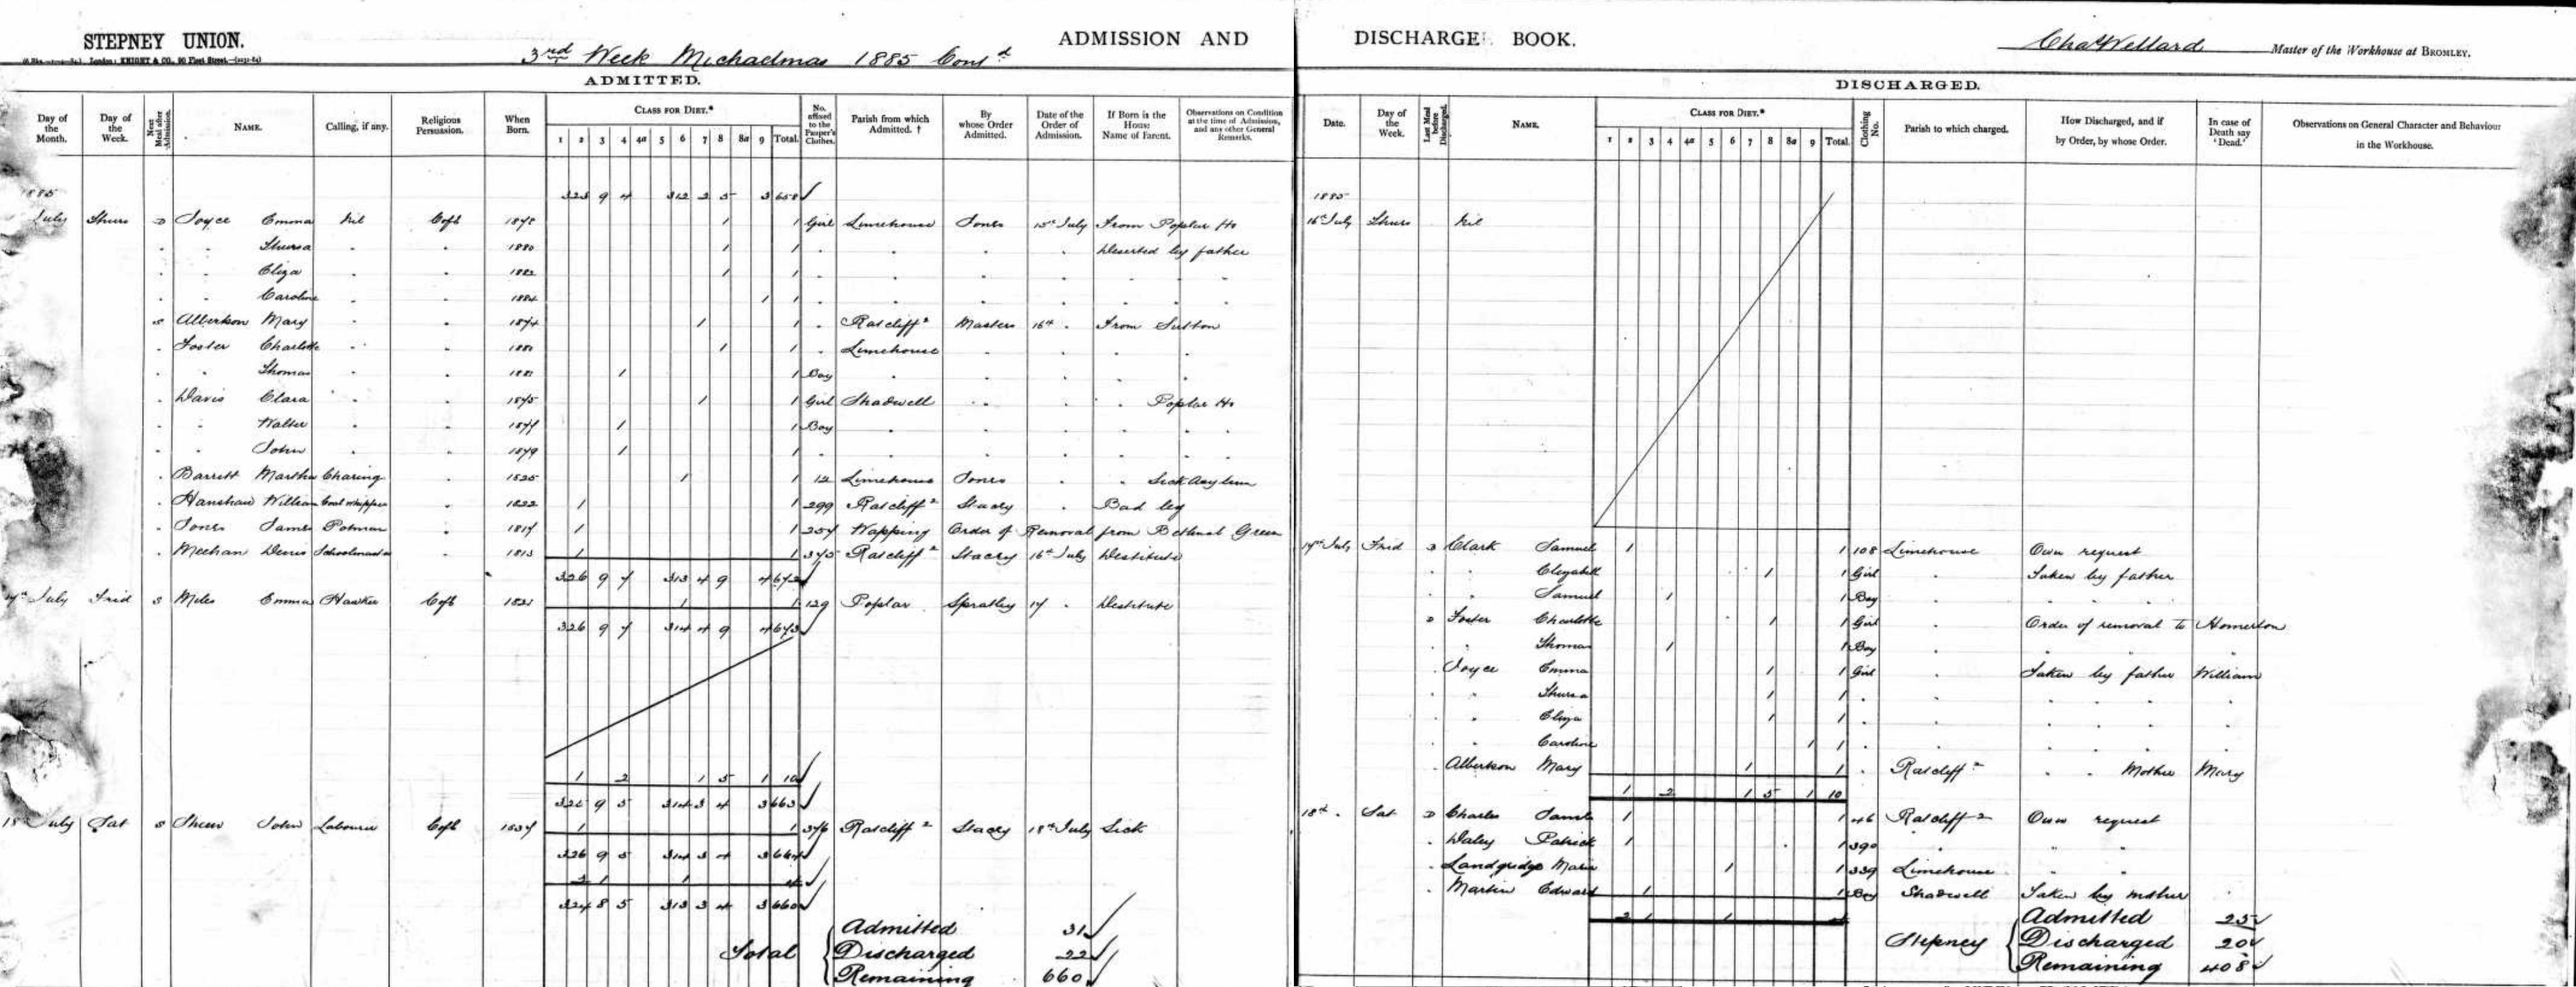 STEPNEY UNION.
London: KNIGHT & CO., 90 Fleet Street.
3rd Week Michaelmas 1885 Contd
ADMISSION AND DISCHARGE BOOK.
Chas Wellard Master of the Workhouse at BROMLEY.
ADMITTED.
Day of the Month. Day of the Week. Next Meal after Admission. NAME. Calling, if any. Religious Persuasion. When Born. CLASS FOR DIET.* 1 2 3 4 4a 5 6 7 8 8a 9 Total. No. affixed to the Pauper's Clothes. Parish from which Admitted. † By whose Order Admitted. Date of the Order of Admission. If Born in the House: Name of Parent. Observations on Condition at the time of Admission, and any other General Remarks.
1885 323 9 4 312 2 5 3 658
July Thurs D Joyce Emma Nil CofE 1878 1 1 Girl Limehouse Jones 15th July From Poplar Ho
" Thursa " " 1880 1 1 " " " " Deserted by father
" Eliza " " 1882 1 1 " " " " " "
" Caroline " " 1884 1 1 " " " " " "
S Alberkon Mary " " 1874 1 1 " Ratcliff 2 Masters 16th " From Sutton
" Foster Charlotte " " 1880 1 1 " Limehouse " " " "
" " Thomas " " 1881 1 1 Boy " " " " "
" Davis Clara " " 1875 1 1 Girl Shadwell " " " Poplar Ho
" " Walter " " 1877 1 1 Boy " " " " "
" " John " " 1879 1 1 " " " " " "
" Barrett Martha Charing " 1825 1 1 12 Limehouse Jones " " Sick Asylum
" Hanshaw William Coal whipper " 1822 1 1 299 Ratcliff 2 Stacey " Bad leg
" Jones James Potman " 1817 1 1 254 Wapping Order of Removal from Bethnal Green
" Meehan Denis Schoolmaster " 1813 1 1 375 Ratcliff 2 Stacey 16th July Destitute
326 9 7 313 4 9 4 672
17th July Frid S Miles Emma Hawker CofE 1821 1 1 129 Poplar Spratley 17 " Destitute
326 9 7 314 4 9 4 673
1 2 1 5 1 10
325 9 5 314 3 4 3 663
18 July Sat S Shew John Labourer CofE 1837 1 1 376 Ratcliff 2 Stacey 18th July Sick
326 9 5 314 3 4 3 664
2 1 1 4
324 8 5 313 3 4 3 660
Total Admitted 31
Discharged 22
Remaining 660
DISCHARGED.
Date. Day of the Week. Last Meal before Discharged. NAME. CLASS FOR DIET.* 1 2 3 4 4a 5 6 7 8 8a 9 Total. Clothing No. Parish to which charged. How Discharged, and if by Order, by whose Order. In case of Death say 'Dead.' Observations on General Character and Behaviour in the Workhouse.
1885
16th July Thurs Nil
17th July Frid D Clark Samuel 1 1 108 Limehouse Own request
" " Elizabeth 1 1 Girl " Taken by father
" " Samuel 1 1 Boy " " " "
D Foster Charlotte 1 1 Girl " Order of removal to Homerton
" Thomas 1 1 Boy " " "
" Joyce Emma 1 1 Girl " Taken by father William
" " Thursa 1 1 " " " " "
" " Eliza 1 1 " " " " "
" " Caroline 1 1 " " " " "
" Alberkon Mary 1 1 " Ratcliff 2 " " Mother Mary
1 2 1 5 1 10
18th " Sat D Charles James 1 1 46 Ratcliff 2 Own request
" Daley Patrick 1 1 390 " " "
" Landgridge Maria 1 1 339 Limehouse " "
" Martin Edward 1 1 Boy Shadwell Taken by mother
2 1 1 4
Stepney Admitted 25
Discharged 20
Remaining 408